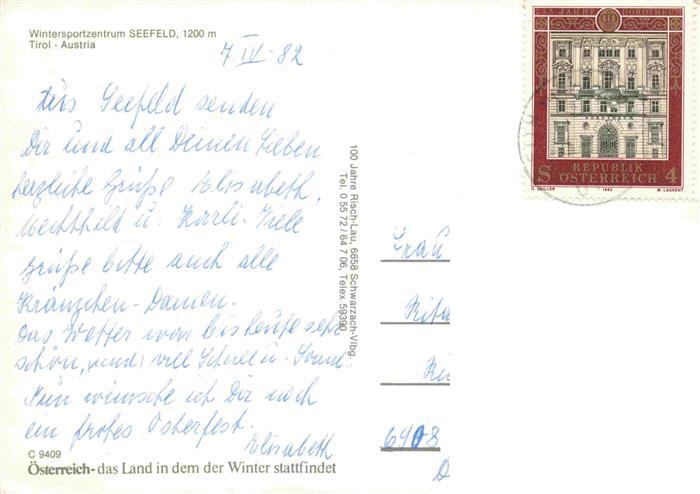 Wintersportzentrum SEEFELD, 1200 m
Tirol - Austria
7 IV - 82
Aus Seefeld senden
Dir und all Deinen Lieben
herzliche Grüße Elisabeth,
Mechthild u. Karli. Viele
Grüße bitte auch alle
Kränzchen-Damen.
Das Wetter war bis heute sehr
schön, (und) viel Schnee u. Sonne.
Nun wünsche ich Dir noch
ein frohes Osterfest.
Elisabeth
C 9409
Österreich- das Land in dem der Winter stattfindet
100 Jahre Risch-Lau, 6858 Schwarzach-Vlbg.
Tel. 0 55 72 / 64 7 06, Telex 59390
275 JAHRE DOROTHEUM
REPUBLIK
S ÖSTERREICH 4
O. ZEILLER 1982 W. LAURENT
Frau
Rita
6908
D